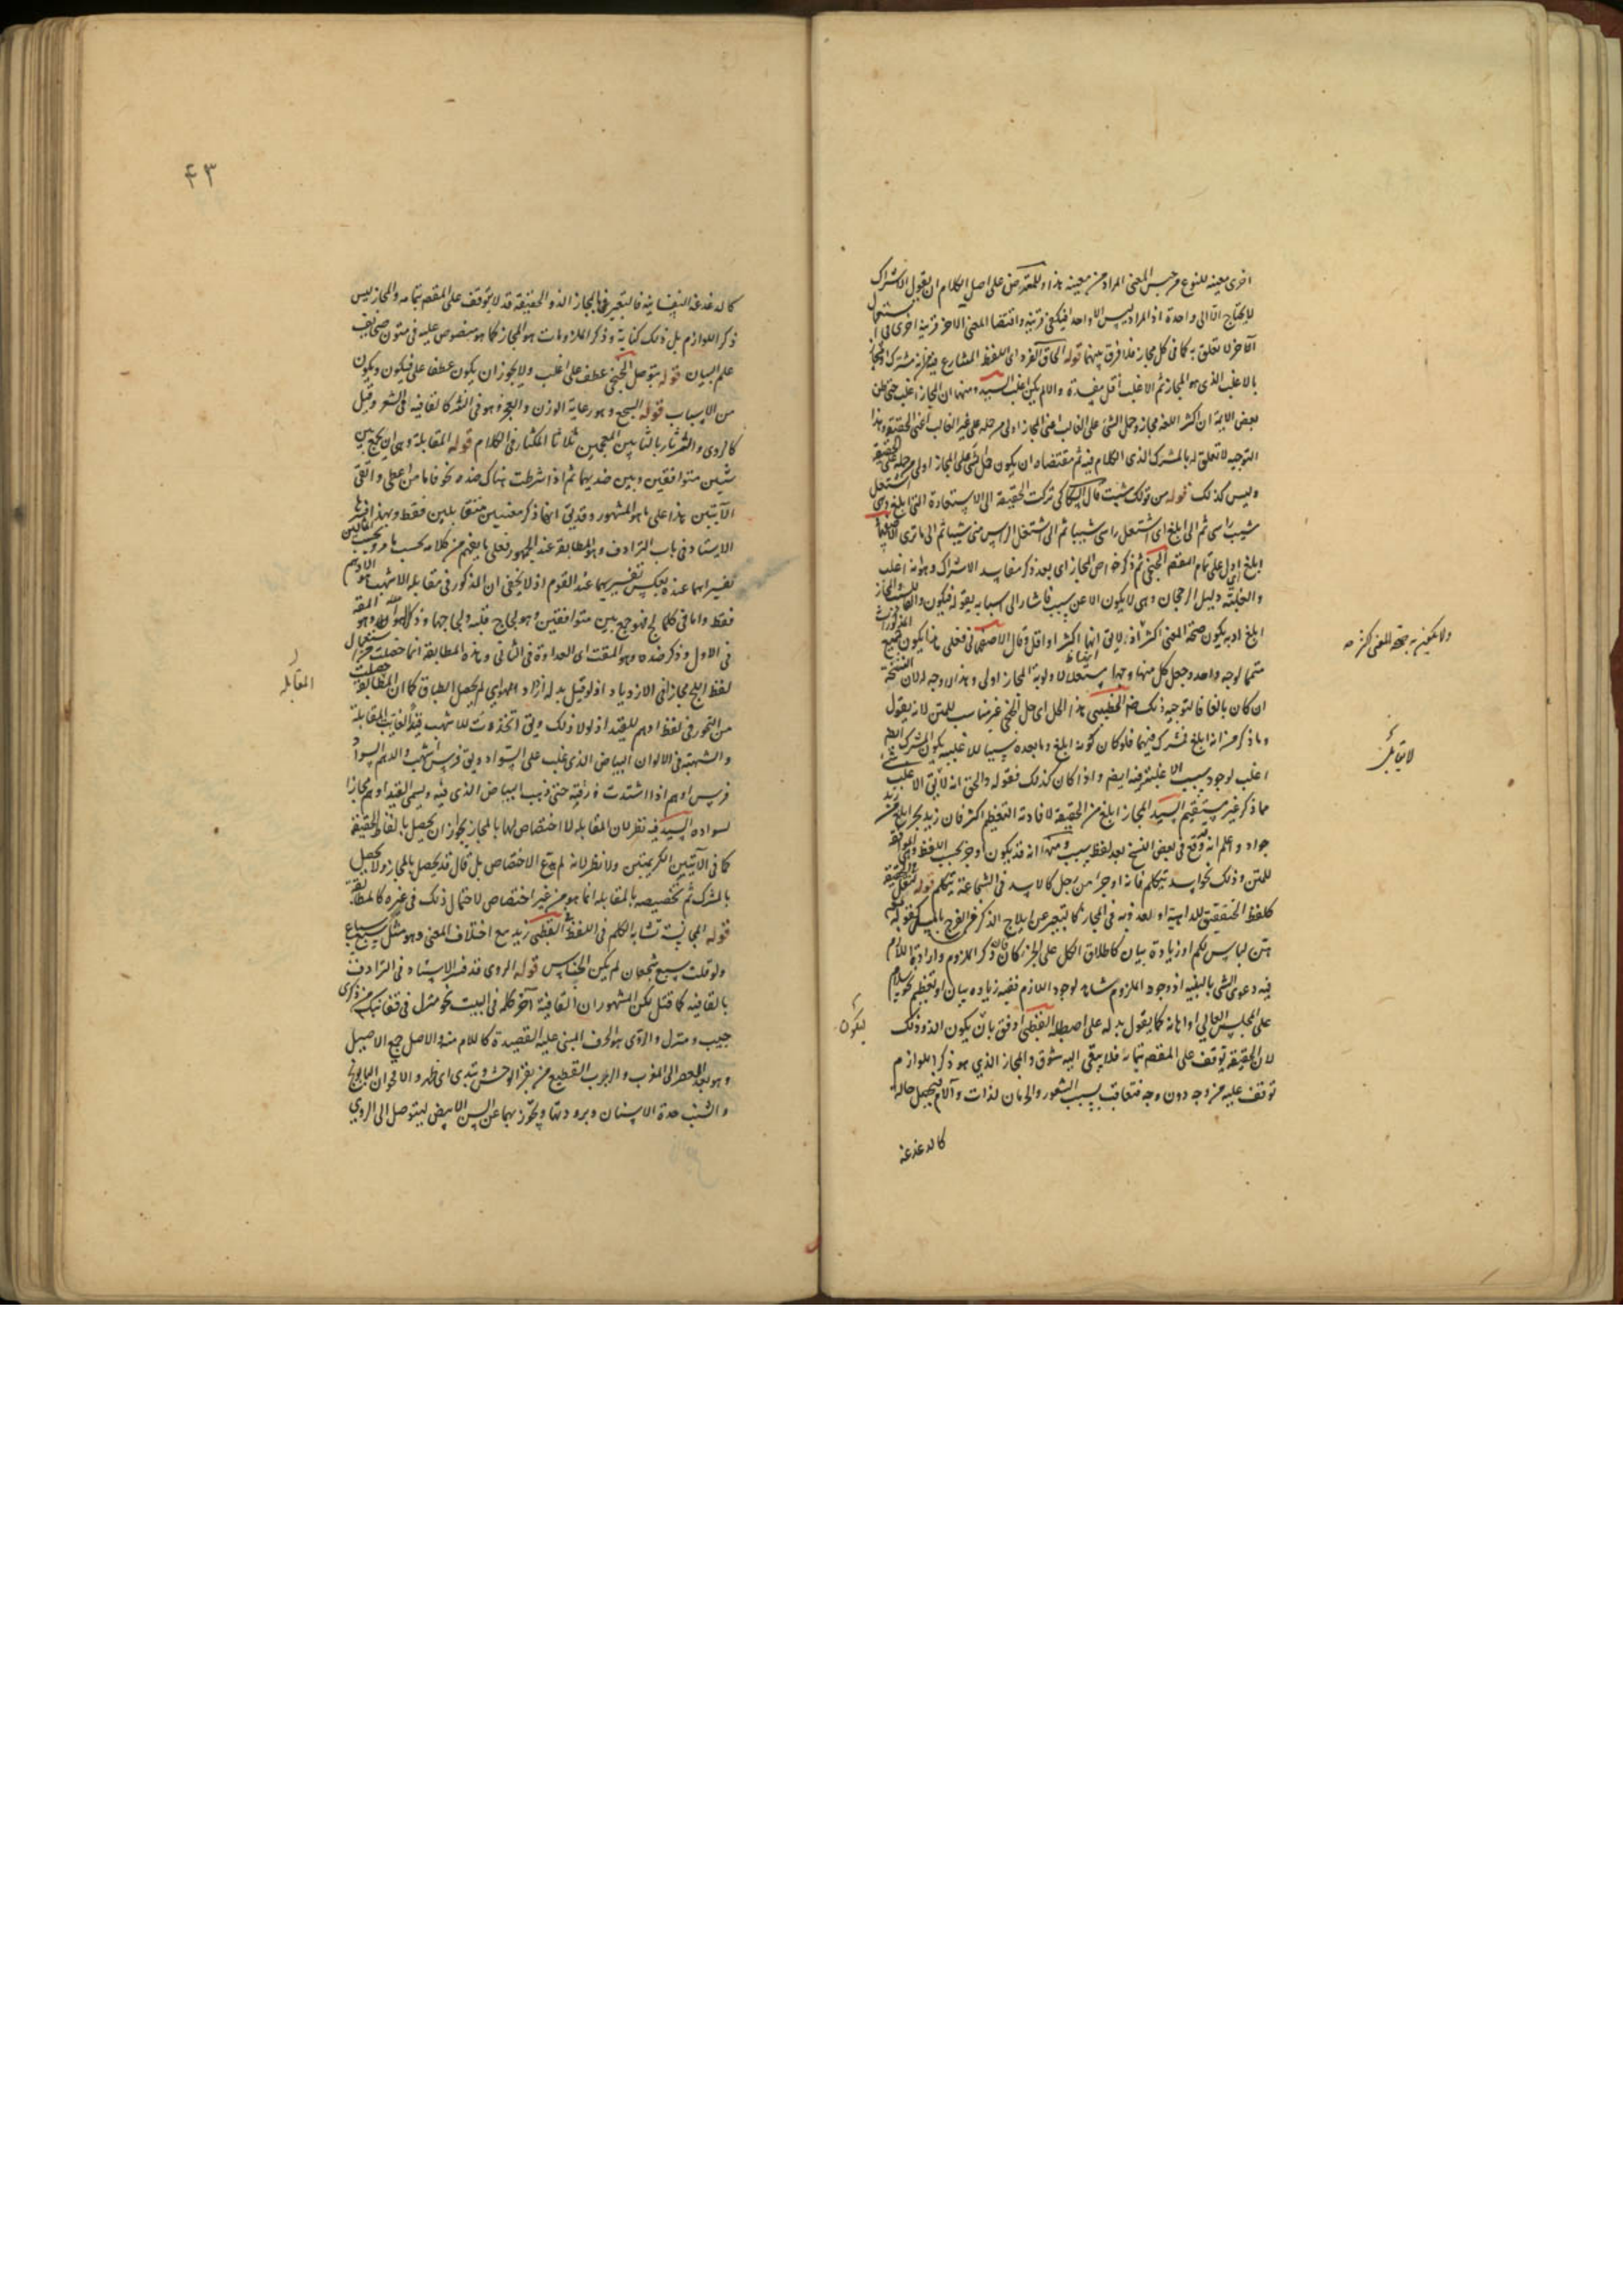 اخرى معينة للنوع من جنس المعنى المراد من معينة هذا وللمعترض على اصل الكلام ان يقول الاشتراك
لا يحتاج الا الى واحدة اذ المراد ليس الا واحدا فيكفى قرينة واقتضا المعنى الآخر قرينة اخرى فى
آخر لا تعلق به كما فى كل مجاز فلا فرق بينهما قوله الحاق الفرد اى اللفظ المشارع فيه
بالاغلب الذى هو المجاز ثم الاغلب أقل مفسدة والا لم يكن اغلب السيد ومنهما ان المجاز اغلب حتى ظن
بعض الايمة ان اكثر اللغة مجاز وحمل الشئ على الغالب اعنى المجاز اولى من حمله على غير الغالب اعنى الحقيقة وهذا
التوجيه لا تعلق له بالمشترك الذى الكلام فيه ثم مقتضاه ان يكون حمل شئ على المجاز اولى من حمله على الحقيقة
وليس كذلك قوله من قولك شبت قال السكاكى تركت الحقيقة الى الاستعارة التى ابلغ وهى اشتعل
شيب راسى ثم الى ابلغ اى اشتعل راسى شيبا ثم الى اشتعل الراس منى شيبا ثم الى ما ترى
ابلغ اى دل على تمام المقصد الخنجى ثم ذكر خواص المجاز اى بعد ذكر مفاسد الاشتراك وهو انه اغلب
والغلبة دليل الرجحان وهى لا يكون الا عن سبب فاشار الى اسبابه بقوله فيكون
ابلغ اوبه يكون صحة المعنى اكثر اذ لا يقال انها اكثر او اقل وقال الاصفهانى فعلى هذا يكون جميع
متمما لوجه واحد وجعل كل منها وجها مستقلا لاولوية المجاز اولى وهذا لا وجه له لان النسخة
ان كان بالفا فالتوجيه ذلك الخطيبى هذا الحل اى حل الخنجى غير مناسب للمتن لانه يقول
وما ذكر من انه ابلغ فمشترك فيهما فلو كان كونه ابلغ وما بعده سببا للاغلبية يكون المشترك ايضا
اغلب لوجود سبب الاغلبية فيه ايضا واذا كان كذلك فقوله والحق انه لا يقال الاغلب
مما ذكر غير مستقيم السيد المجاز ابلغ من الحقيقة لافادته التعظيم اكثر فان زيد بحر ابلغ من زيد
جواد واعلم انه وقع فى بعض النسخ بعد لفظ بسبب ومنها انه قد يكون اوجز بحسب اللفظ
للمتن وذلك نحو اسد يتكلم فانه اوجز من رجل كالاسد فى الشجاعة يتكلم قوله لثقل الحقيقة
كلفظ الخنفقيق للداهية او لعذوبة فى المجاز كالتعبير عن ايلاج الذكر فى الفرج
هن لباس لكم او زيادة بيان كاطلاق الكل على الجزء ذكر الملزوم وارادة اللازم
فيه دعوى الشئ بالبينة اذ وجود الملزوم شاهد لوجود اللازم ففيه زيادة بيان او تعظيم نحو سلام
على المجلس العالى او اهانة كما يقول بدله على اصطبله القطبى اوفق بان يكون الذ وذلك
لان الحقيقة توقف على المقصد بتمامه فلا يبقى اليه شوق والمجاز الذى هو ذكر اللوازم
توقف عليه من وجه دون وجه فتعاقب بسبب الشعور والحرمان لذات وآلام فيحصل حالة
كالدغدغة
لا يقابل
ليكون
٤٣
كالدغدغة النفسانية فالتعبير بالمجاز الذ والحقيقة قد لا توقف على المقصد بتمامه والمجاز ليس
ذكر اللوازم بل ذلك كناية وذكر الملزومات هو المجاز كما هو منصوص عليه فى متون صحايف
علم البيان قوله يتوصل الخنجى عطف على اغلب ولا يجوز ان يكون عطفا على فيكون ويكون
من الاسباب قوله السجع وهو رعاية الوزن والعجز وهو فى النثر كالقافية فى الشعر وقيل
كالروى والثرثار بالثابين المعجمتين ثلاثا المكثار فى الكلام قوله المقابلة وهى ان يجمع بين
شيئين متوافقين وبين ضديهما ثم اذا شرطت هناك ضده نحو فاما من اعطى واتقى
الآيتين هذا على ما هو المشهور وقد يقال انها ذكر معنيين متقابلين فقط وبهذا
الاستاد فى باب الترادف وهو المطابقة عند الجمهور فعلى ما يفهم من كلامه بحسب ما مر
تفسيرهما عنده بعكس تفسيرهما عند القوم اذ لا يخفى ان المذكور فى مقابلة الاشهب هو الادهم
فقط واما فى كلما لج فهو جمع بين متوافقين هو لجاج قلبه ولجاجها
فى الاول وذكر ضده وهو المقت اى العداوة فى الثانى وهذه المطابقة انما حصلت من استعمال
لفظ لج مجازا فى الازدياد اذ لو قيل بدله ازداد هواى لم يحصل الطباق كما ان المطابقة حصلت
من التجوز فى لفظ ادهم للقيد اذ لولا ذلك ويقال اتخذت للاشهب قيدا لفاتت المقابلة
والشهبة فى الالوان البياض الذى غلب على السواد ويقال فرس اشهب والدهم السواد
فرس ادهم اذا اشتدت ورقته حتى ذهب البياض الذى فيه ويسمى القيد ادهم مجازا
لسواده السيد فيه نظر لان المقابلة لا اختصاص لها بالمجاز لجواز ان يحصل بالفاظ الحقيقة
كما فى الآيتين الكريمتين ولا نظر لانه لم يدع الاختصاص بل قال قد يحصل بالمجاز ولا يحصل
بالمشترك ثم تخصيصه بالمقابلة انما هو من غير اختصاص لاحتمال ذلك فى غيره كالمطابقة
قوله المجانسة تشابه الكلم فى اللفظ القطبى زيد مع اختلاف المعنى وهو مثل سبع سباع
ولو قلت سبع شجعان لم يكن الجناس قوله الروى قد فسر الاستاد فى الترادف
بالقافية كما قيل لكن المشهور ان القافية آخر كلمة فى البيت نحو منزل فى قفا نبك من ذكرى
حبيب ومنزل والروى هو الحرف المبنى عليه القصيدة كاللام منه والاصل جمع الاصيل
وهو بعد العصر الى المغرب والربرب القطيع من بقر الوحش وتبدى اى ظهر والاقحوان البابونج
والشنب حدة الاسنان وبرودتها وتجوز بهما عن السن الابيض ليتوصل الى الروى
المقابلة